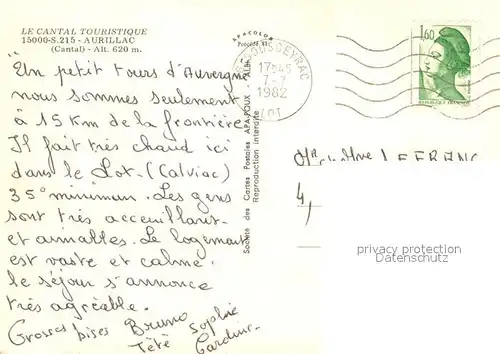 LE CANTAL TOURISTIQUE
15000-S.215 - AURILLAC
(Cantal) - Alt. 620 m.
"Un petit tours d'Auvergne
nous sommes seulement
à 15 Km de la frontière
Il fait très chaud ici
dans le Lot (Calviac)
35° minimum. Les gens
sont très acceuillants
et aimables. Le logement
est vaste et calme.
le séjour s'annonce
très agréable.
Grosses bises Bruno
Tété Sophie
APACOLOR
Procédé
Société des Cartes Postales APA-POUX - ALBI
Reproduction interdite
SOUSCEYRAC
17H45
7-7
1982
LOT
1,60
REPUBLIQUE FRANÇAISE
Mr et Mme LEFRANC
privacy protection
Datenschutz